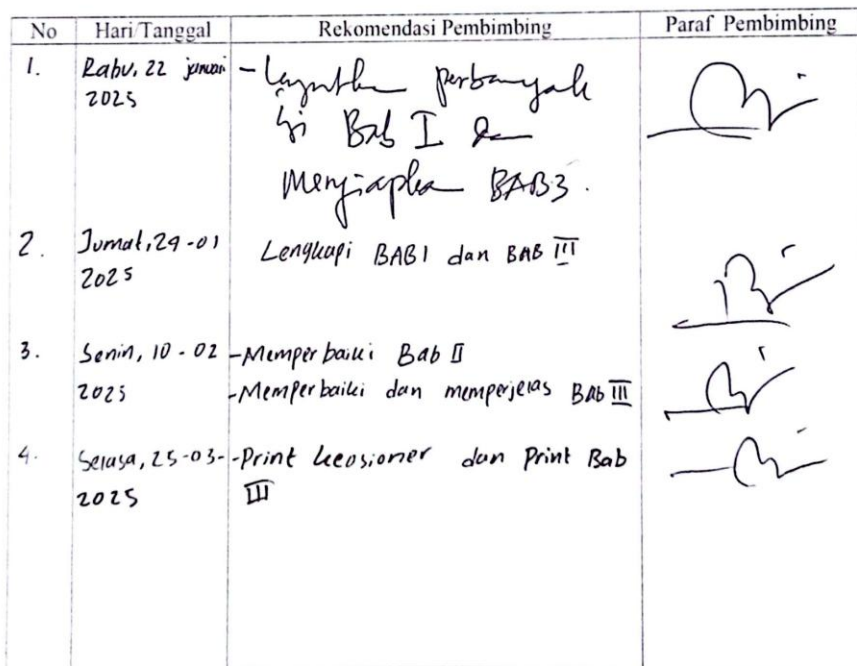 No Hari/Tanggal Rekomendasi Pembimbing Paraf Pembimbing
1. Rabu, 22 januari - perbanyak
2025
isi Bab I dan
Menyiapka BAB3.
2. Jumat, 29-01 Lengkapi BAB1 dan BAB III
2025
3. Senin, 10-02 -Memperbaiki Bab II
2025 -Memperbaiki dan memperjelas BAb III
4. Selasa, 25-03- -Print keosioner dan Print Bab
2025 III